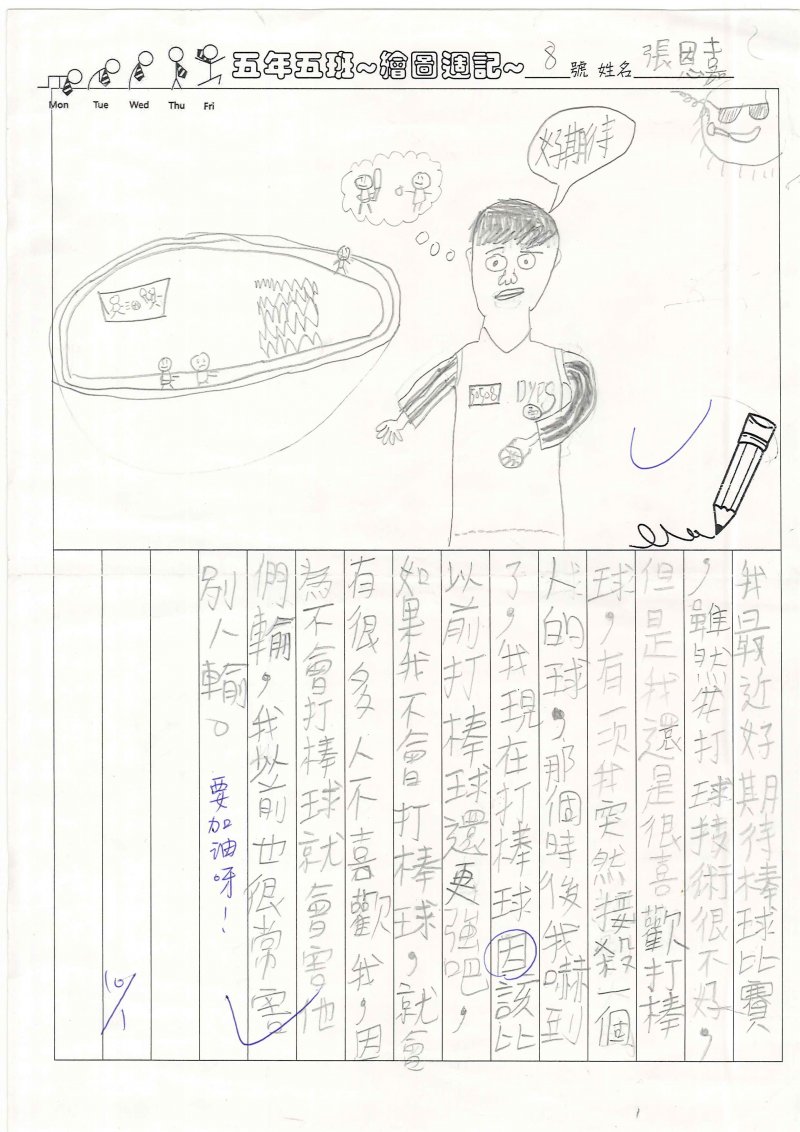 五年五班~繪圖週記~ 8 號 姓名 張恩嘉
Mon Tue Wed Thu Fri
好期待
50508 DYPS
我最近好期待棒球比賽
，雖然我打球技術很不好，
但是我還是很喜歡打棒
球，有一次我突然接殺一個
人的球，那個時後我嚇到
了，我現在打棒球因該比
以前打棒球還更強吧，
如果我不會打棒球，就會
有很多人不喜歡我，因
為不會打棒球就會害他
們輸，我以前也很常害
別人輸。
要加油呀！
10/1